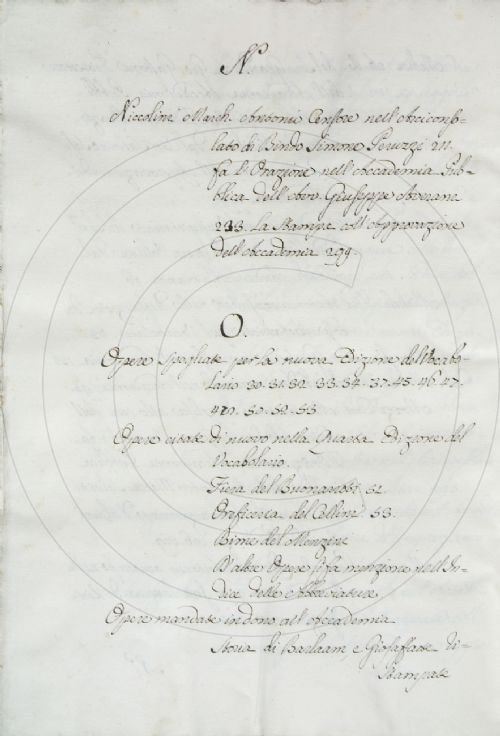 N.
Niccolini March. Antonio Censore nell'Arciconso-
lato di Bindo Simone Peruzzi 211.
fa l'Orazione nell'Accademia Pub-
blica dell'Avv. Giuseppe Averani
233. La Stampa coll'Approvazione
dell'Accademia 299.
O.
Opere spogliate per la nuova Edizione del Vocabo-
lario 30. 31. 32. 33. 34. 37. 45. 46. 47.
49. 50. 52. 53.
Opere citate di nuovo nella Quarta Edizione del
Vocabolario.
Fiera del Buonarroti 52.
Oreficeria del Cellini 53.
Rime del Menzini
D'altre Opere si fa menzione nell'In-
dice delle Abbreviature.
Opere mandate in dono all'Accademia
Storia di Barlaam, e Giosaffatte Ri-
stampate